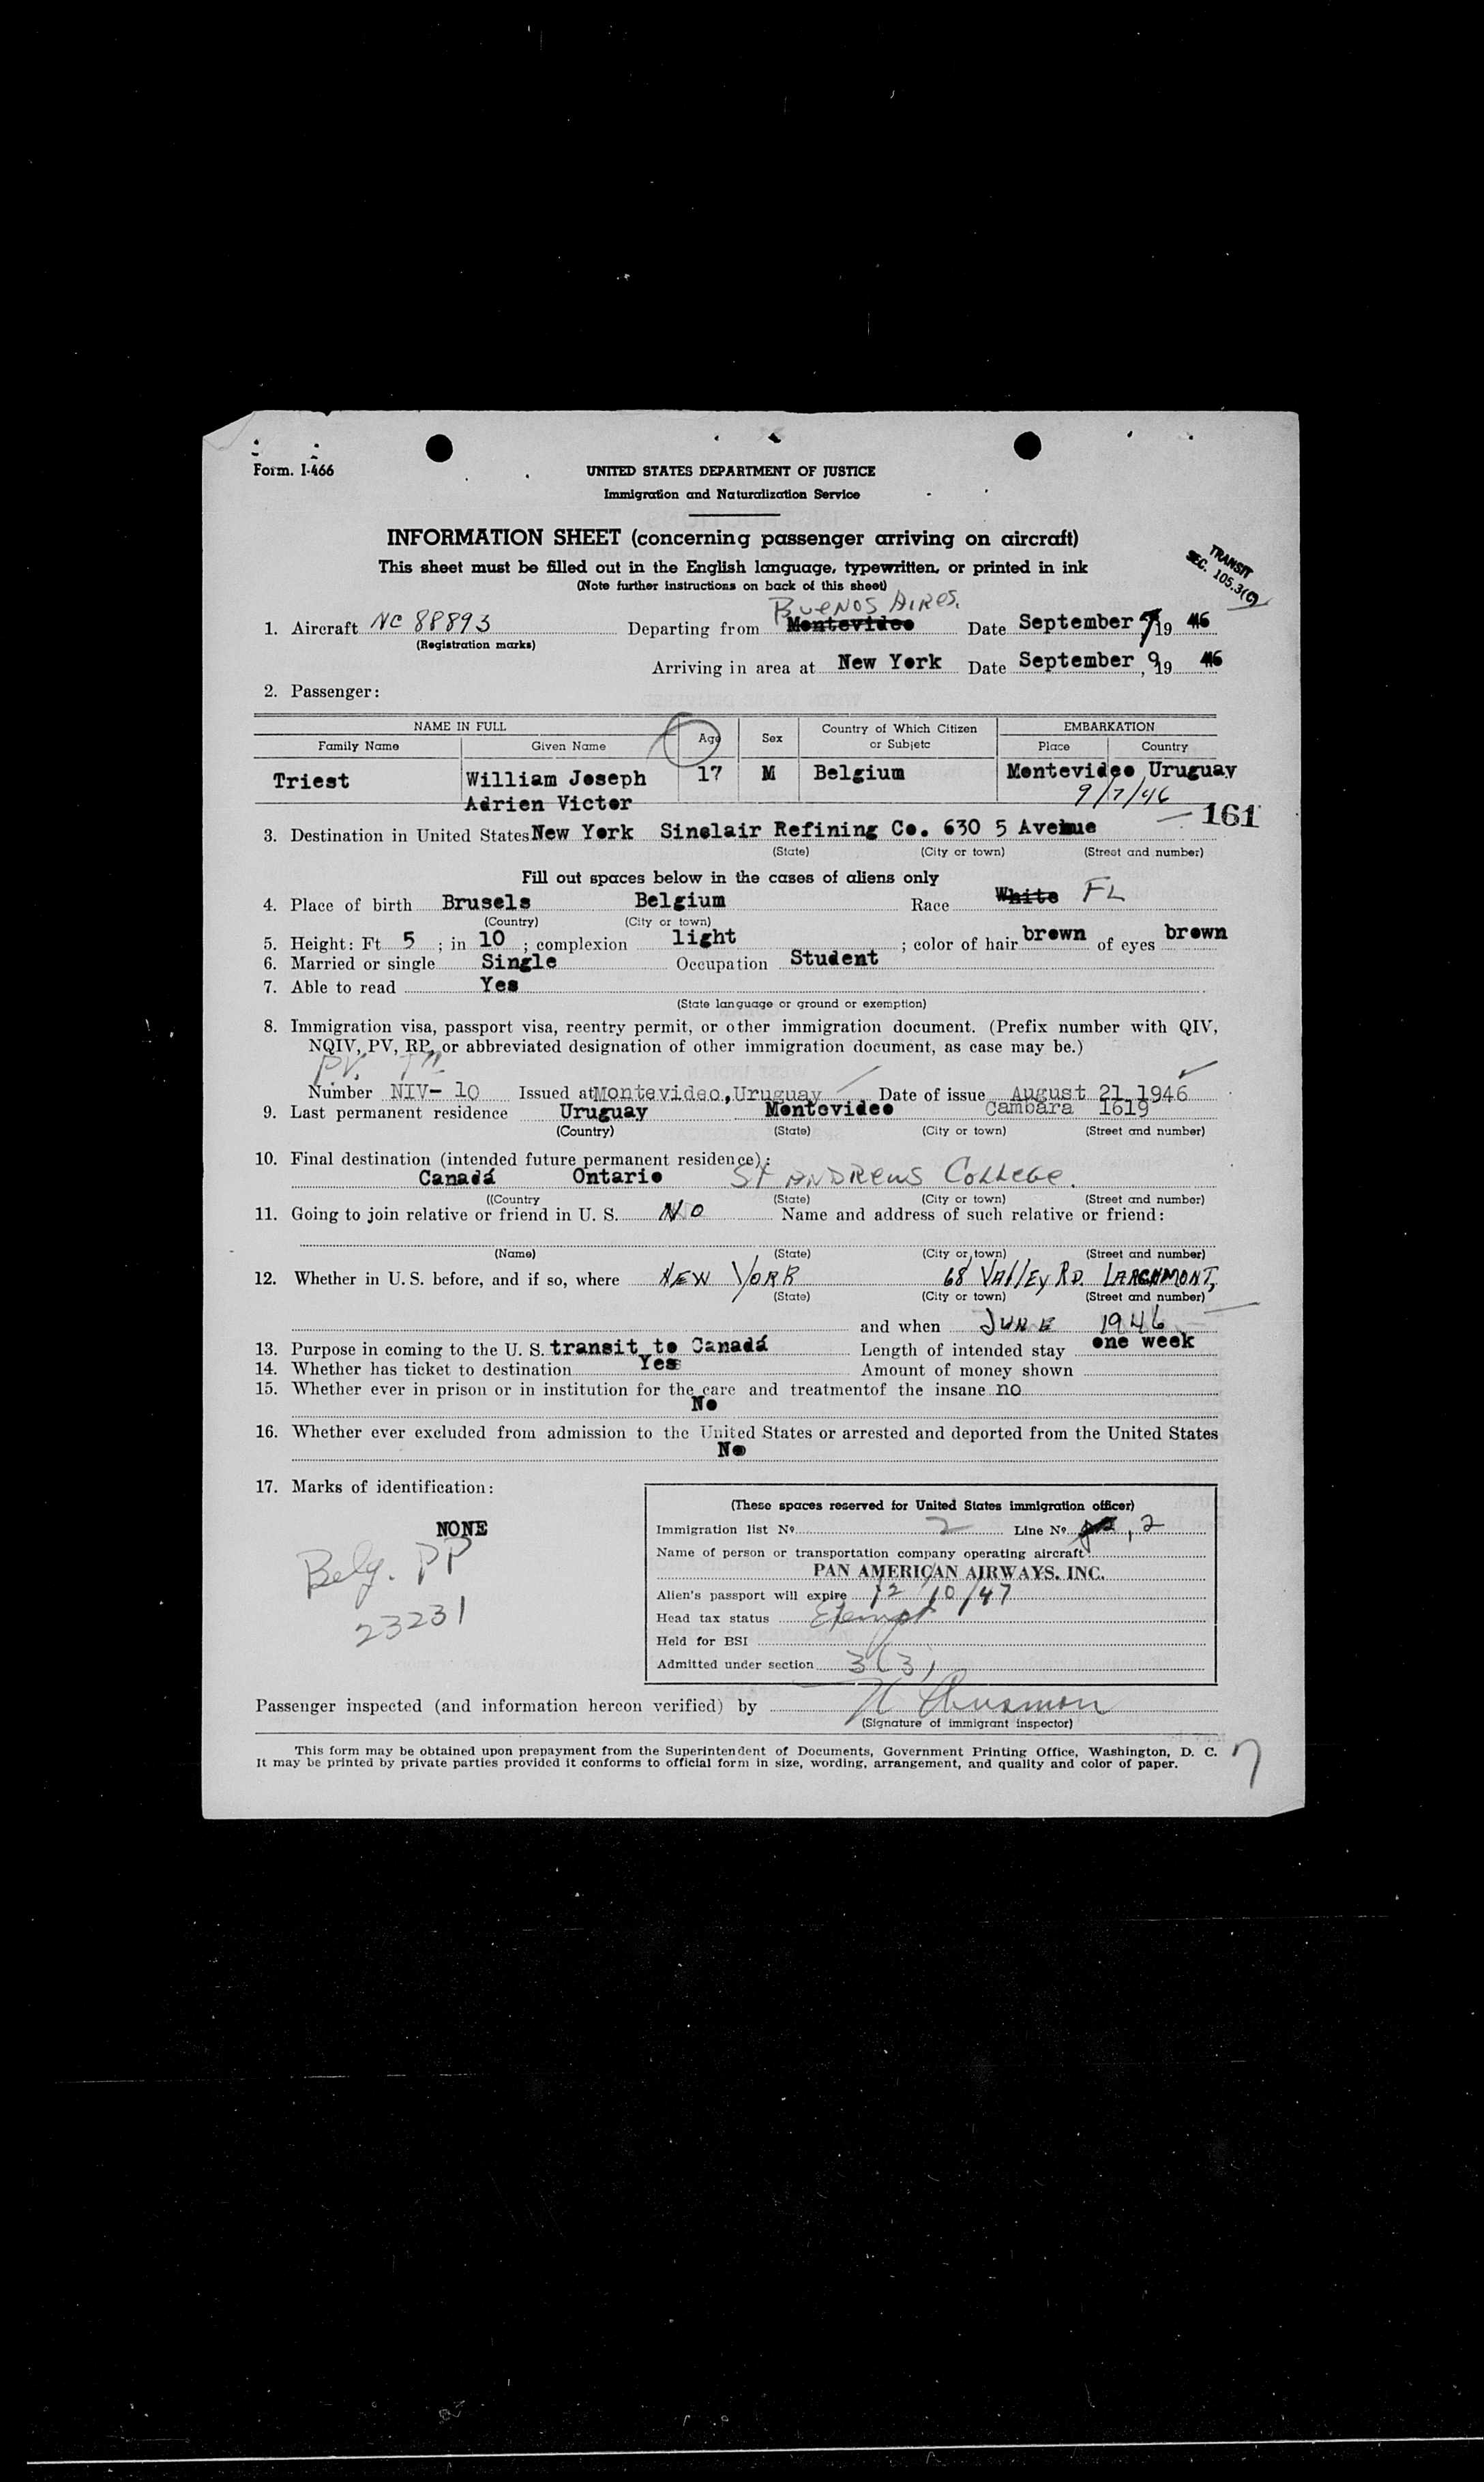 Form. I-466
UNITED STATES DEPARTMENT OF JUSTICE
Immigration and Naturalization Service
INFORMATION SHEET (concerning passenger arriving on aircraft)
This sheet must be filled out in the English language, typewritten, or printed in ink
(Note further instructions on back of this sheet)
TRANSIT
SEC. 105.3(C)
BUENOS AIRES.
1. Aircraft NC 88893 Departing from Montevideo Date September 7, 19 46
(Registration marks)
Arriving in area at New York Date September, 9 19 46
2. Passenger:
NAME IN FULL Age Sex Country of Which Citizen or Subjetc EMBARKATION
Family Name Given Name Place Country
Triest William Joseph 17 M Belgium Montevideo Uruguay
Adrien Victor 9/7/46
161
3. Destination in United States New York Sinclair Refining Co. 630 5 Avenue
(State) (City or town) (Street and number)
Fill out spaces below in the cases of aliens only
4. Place of birth Brusels Belgium Race White FL
(Country) (City or town)
5. Height: Ft 5 ; in 10 ; complexion light ; color of hair brown of eyes brown
6. Married or single Single Occupation Student
7. Able to read Yes
(State language or ground or exemption)
8. Immigration visa, passport visa, reentry permit, or other immigration document. (Prefix number with QIV,
NQIV, PV, RP, or abbreviated designation of other immigration document, as case may be.)
PV.
Number NIV- 10 Issued at Montevideo, Uruguay Date of issue August 21 1946
9. Last permanent residence Uruguay Montevideo Cambara 1619
(Country) (State) (City or town) (Street and number)
10. Final destination (intended future permanent residence):
Canadá Ontario ST ANDREWS COLLEGE.
((Country (State) (City or town) (Street and number)
11. Going to join relative or friend in U. S. NO Name and address of such relative or friend:
(Name) (State) (City or town) (Street and number)
12. Whether in U. S. before, and if so, where NEW YORK 68 VALLEY RD. LARCHMONT,
(State) (City or town) (Street and number)
and when JUNE 1946
13. Purpose in coming to the U. S. transit to Canadá Length of intended stay one week
14. Whether has ticket to destination Yes Amount of money shown
15. Whether ever in prison or in institution for the care and treatmentof the insane no
No
16. Whether ever excluded from admission to the United States or arrested and deported from the United States
No
17. Marks of identification:
NONE
Belg. PP
23231
(These spaces reserved for United States immigration officer)
Immigration list Nº 2 Line Nº , 2
Name of person or transportation company operating aircraft
PAN AMERICAN AIRWAYS, INC.
Alien's passport will expire 12/10/47
Head tax status Exempt
Held for BSI
Admitted under section 3(3)
Passenger inspected (and information hereon verified) by
(Signature of immigrant inspector)
This form may be obtained upon prepayment from the Superintendent of Documents, Government Printing Office, Washington, D. C.
It may be printed by private parties provided it conforms to official form in size, wording, arrangement, and quality and color of paper.
7